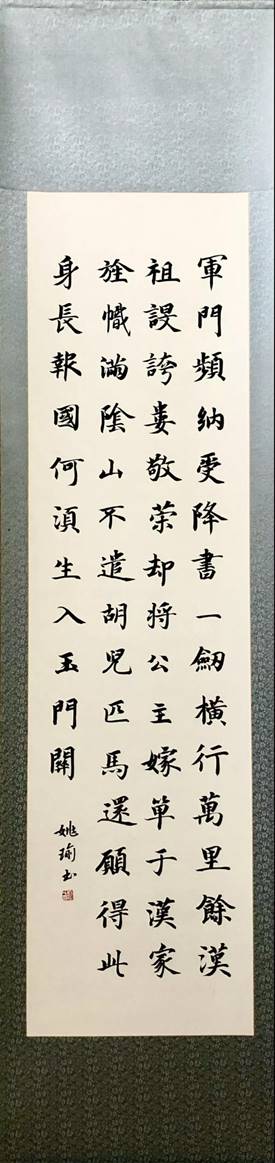 軍門頻納受降書一劒橫行萬里餘漢
祖謾誇婁敬策却将公主嫁單于漢家
旌幟滿陰山不遣胡兒匹馬還願得此
身長報國何須生入玉門關
姚瑜书